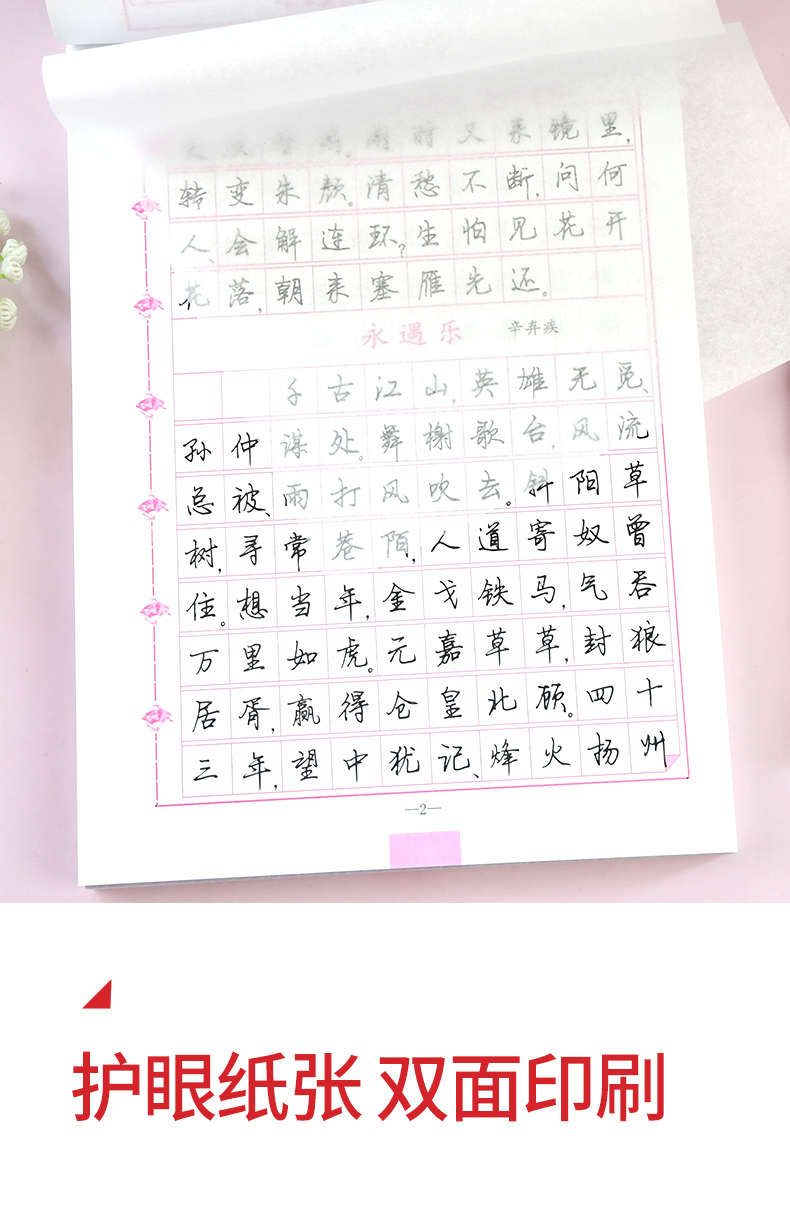 闲。闲时又来镜里,
转变朱颜。清愁不断,问何
人、会解连环?生怕见花开
花落,朝来塞雁先还。
永遇乐 辛弃疾
千古江山,英雄无觅、
孙仲谋处。舞榭歌台,风流
总被、雨打风吹去。斜阳草
树,寻常巷陌,人道寄奴曾
住。想当年,金戈铁马,气吞
万里如虎。元嘉草草,封狼
居胥,赢得仓皇北顾。四十
三年,望中犹记、烽火扬州
—2—
护眼纸张 双面印刷